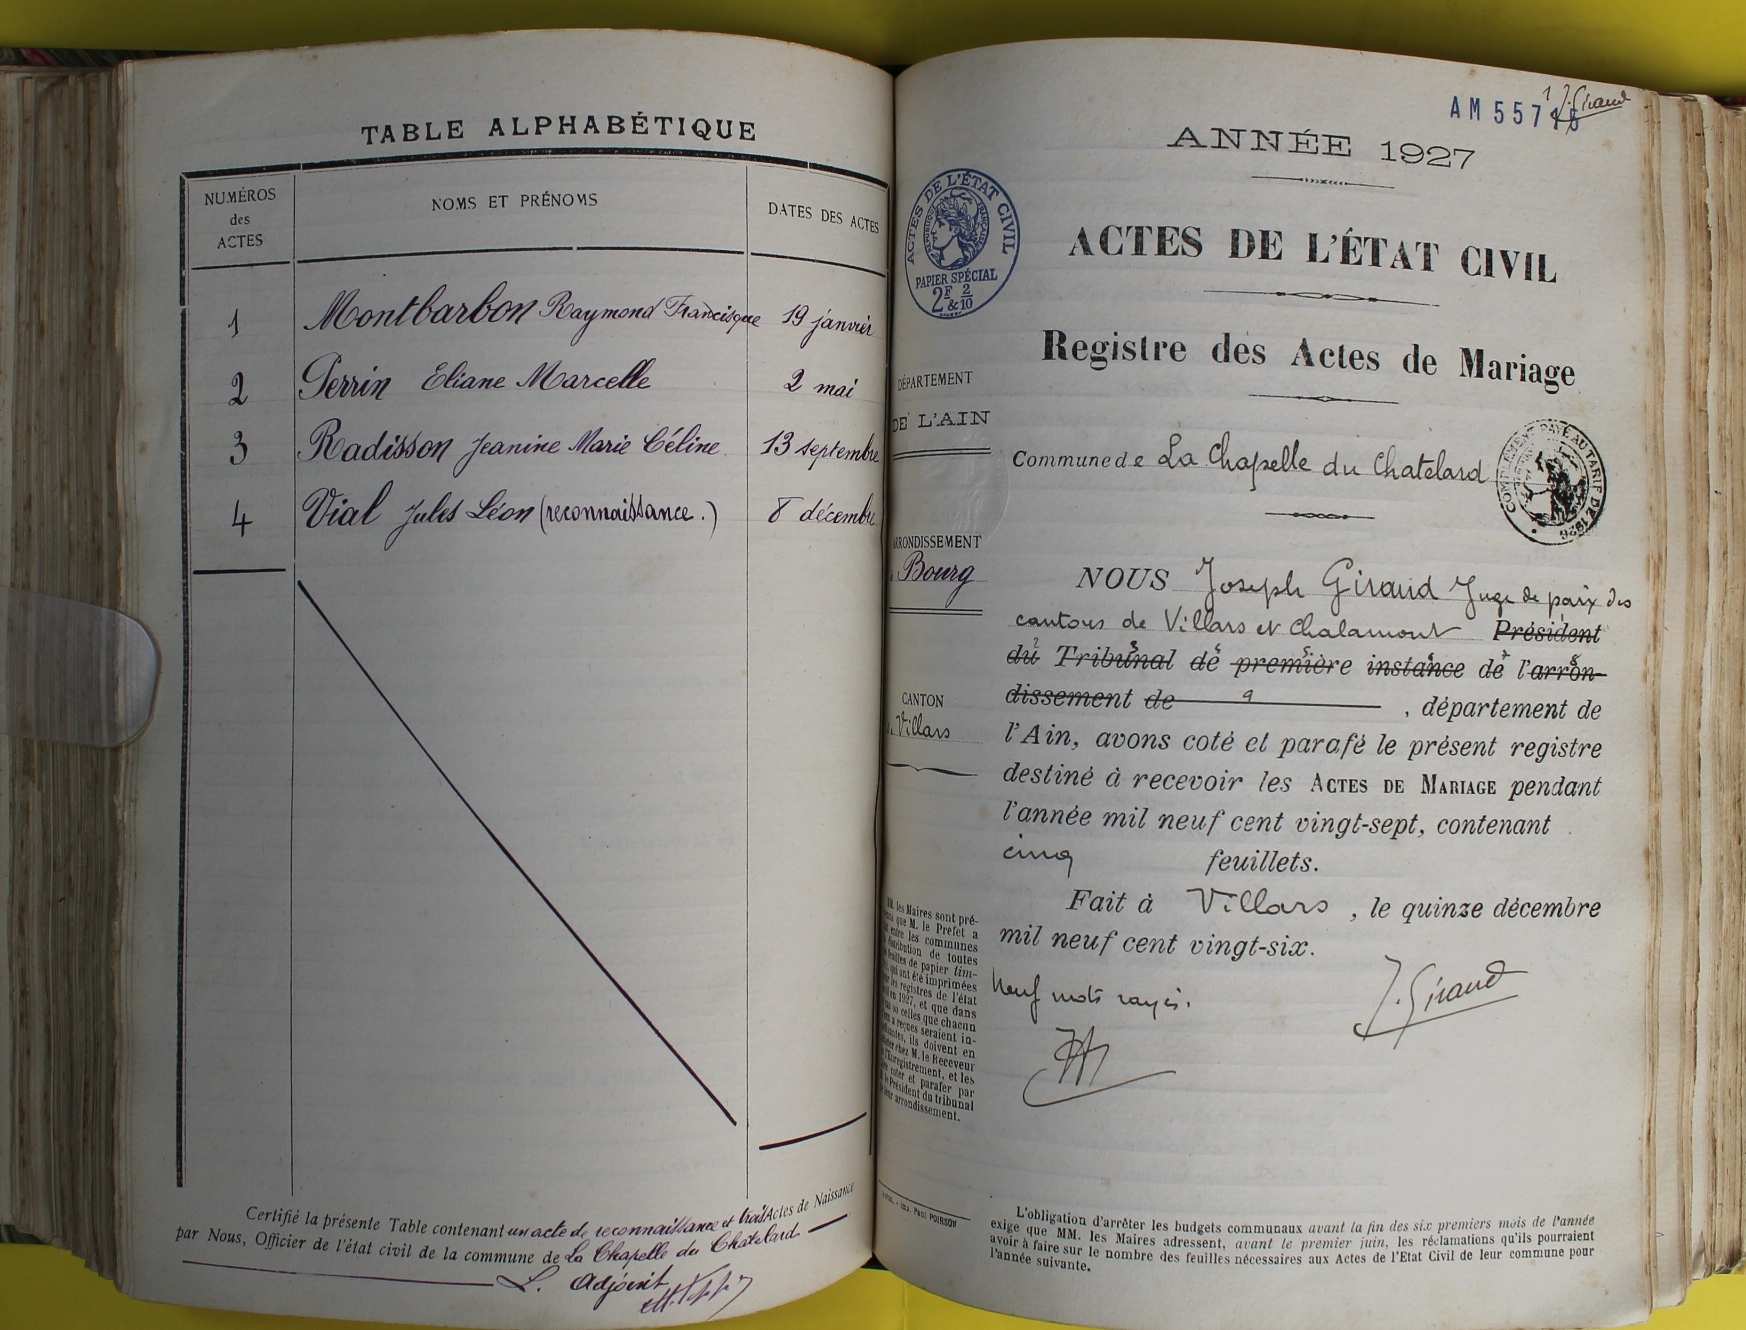 TABLE ALPHABÉTIQUE
NUMÉROS
des
ACTES
NOMS ET PRÉNOMS
DATES DES ACTES
1 Montbarbon Raymond Francisque 19 janvier
2 Perrin Eliane Marcelle 2 mai
3 Radisson Jeanine Marie Céline 13 septembre
4 Vial Jules Léon (reconnaissance.) 8 décembre
Certifié la présente Table contenant un acte de reconnaissance et trois Actes de Naissance
par Nous, Officier de l'état civil de la commune de La Chapelle du Chatelard
L. Adjoint
1 J. Giraud
AM 557
ANNÉE 1927
ACTES DE L'ÉTAT CIVIL
PAPIER SPÉCIAL
2F & 2/10
ACTES DE L'ÉTAT CIVIL
Registre des Actes de Mariage
DÉPARTEMENT
DE L'AIN
Commune de La Chapelle du Chatelard
COMPLÉMENT PAYÉ AU TARIF DE 1926
ARRONDISSEMENT
Bourg
CANTON
Villars
NOUS Joseph Giraud Juge de paix des
cantons de Villars et Chalamont Président
du Tribunal de première instance de l'arron-
dissement de 9 , département de
l'Ain, avons coté et parafé le présent registre
destiné à recevoir les ACTES DE MARIAGE pendant
l'année mil neuf cent vingt-sept, contenant
cinq feuillets.
Fait à Villars, le quinze décembre
mil neuf cent vingt-six.
Neuf mots rayés.
J. Giraud
MM. les Maires sont pré-
que M. le Préfet a
entre les communes
distribution de toutes
feuilles de papier tim-
qui ont été imprimées
les registres de l'état
en 1927, et que dans
celles que chacun
a reçues seraient in-
, ils doivent en
chez M. le Receveur
l'Enregistrement, et les
coter et parafer par
Président du tribunal
leur arrondissement.
Imp. Paul POIRSON
L'obligation d'arrêter les budgets communaux avant la fin des six premiers mois de l'année
exige que MM. les Maires adressent, avant le premier juin, les réclamations qu'ils pourraient
avoir à faire sur le nombre des feuilles nécessaires aux Actes de l'Etat Civil de leur commune pour
l'année suivante.